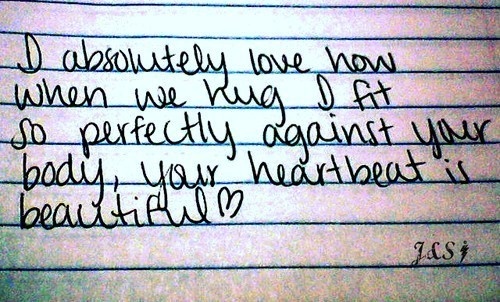 I absolutely love how
when we hug I fit
so perfectly against your
body, your heartbeat is
beautiful♡
J&S